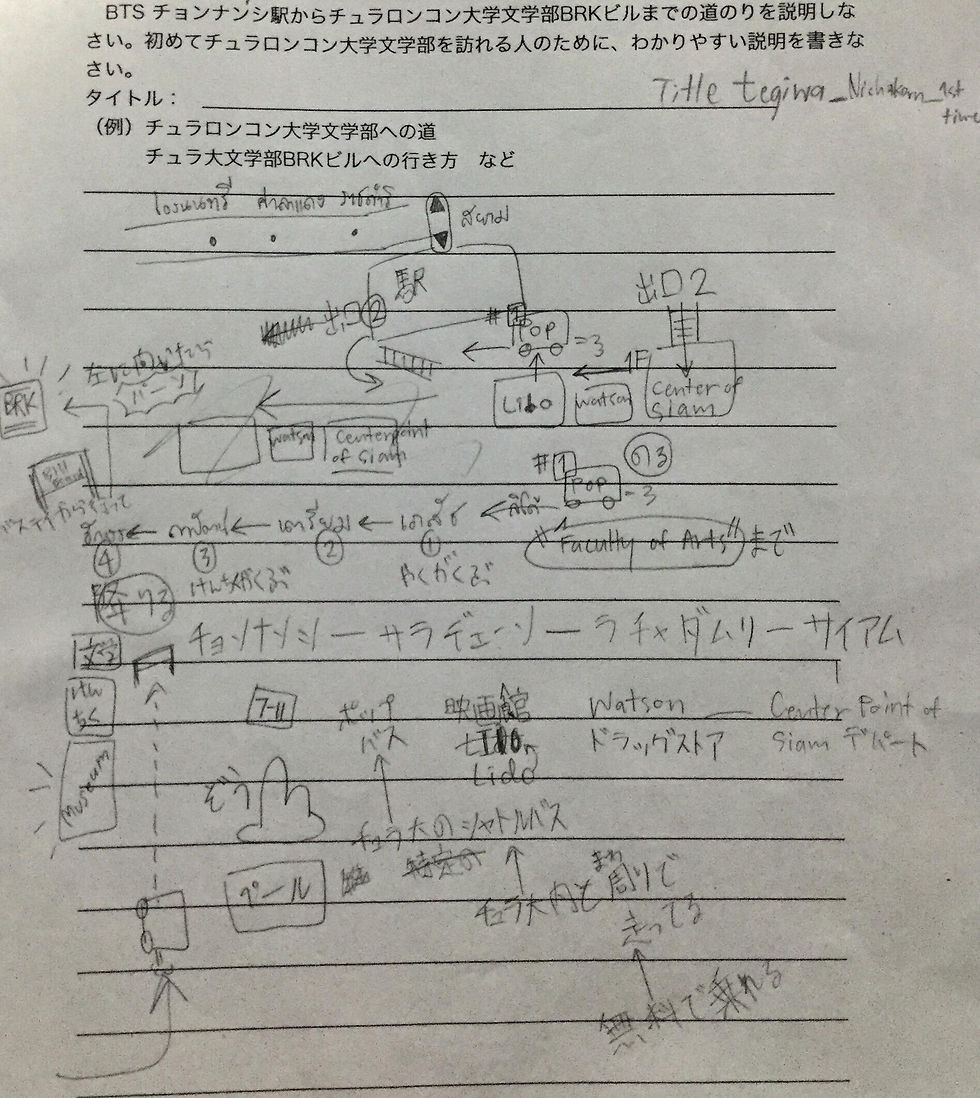 BTS チョンナンシ駅からチュラロンコン大学文学部BRKビルまでの道のりを説明しな
さい。初めてチュラロンコン大学文学部を訪れる人のために、わかりやすい説明を書きな
さい。
タイトル：
Title tegiwa_Nichakarn_1st
time
（例）チュラロンコン大学文学部への道
チュラ大文学部BRKビルへの行き方　など
ศาลาแดง ราชดำริ
สยาม
駅
出口②
出口2
#1
POP
=3
1F
Lido
Watson
Center of
Siam
BRK
バーン
Watson
Centerpoint
of Siam
#1
POP
=3
のる
ลิโด้
เภสัช
เตรียม
"Faculty of Arts"まで
①
②
③
④
やくがくぶ
けんちくがくぶ
降りる
文学
チョンナンシ ー サラデェーン ー ラチャダムリ ー サイアム
けん
ちく
7-11
ポップ
バス
映画館
Lido
Watson
ドラッグストア
Center Point of
Siam デパート
Museum
ぞう
チュラ大のシャトルバス
プール
チュラ大内と周りで
まわ
走ってる
無料で乗れる